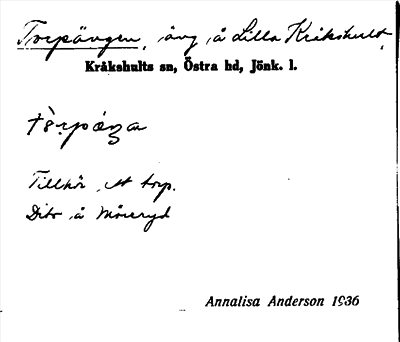 Torpängen, äng å Lilla Kråkshult,
Kråkshults sn, Östra hd, Jönk. l.
Tillhör ett torp.
Dito å Möneryd
Annalisa Anderson 1936